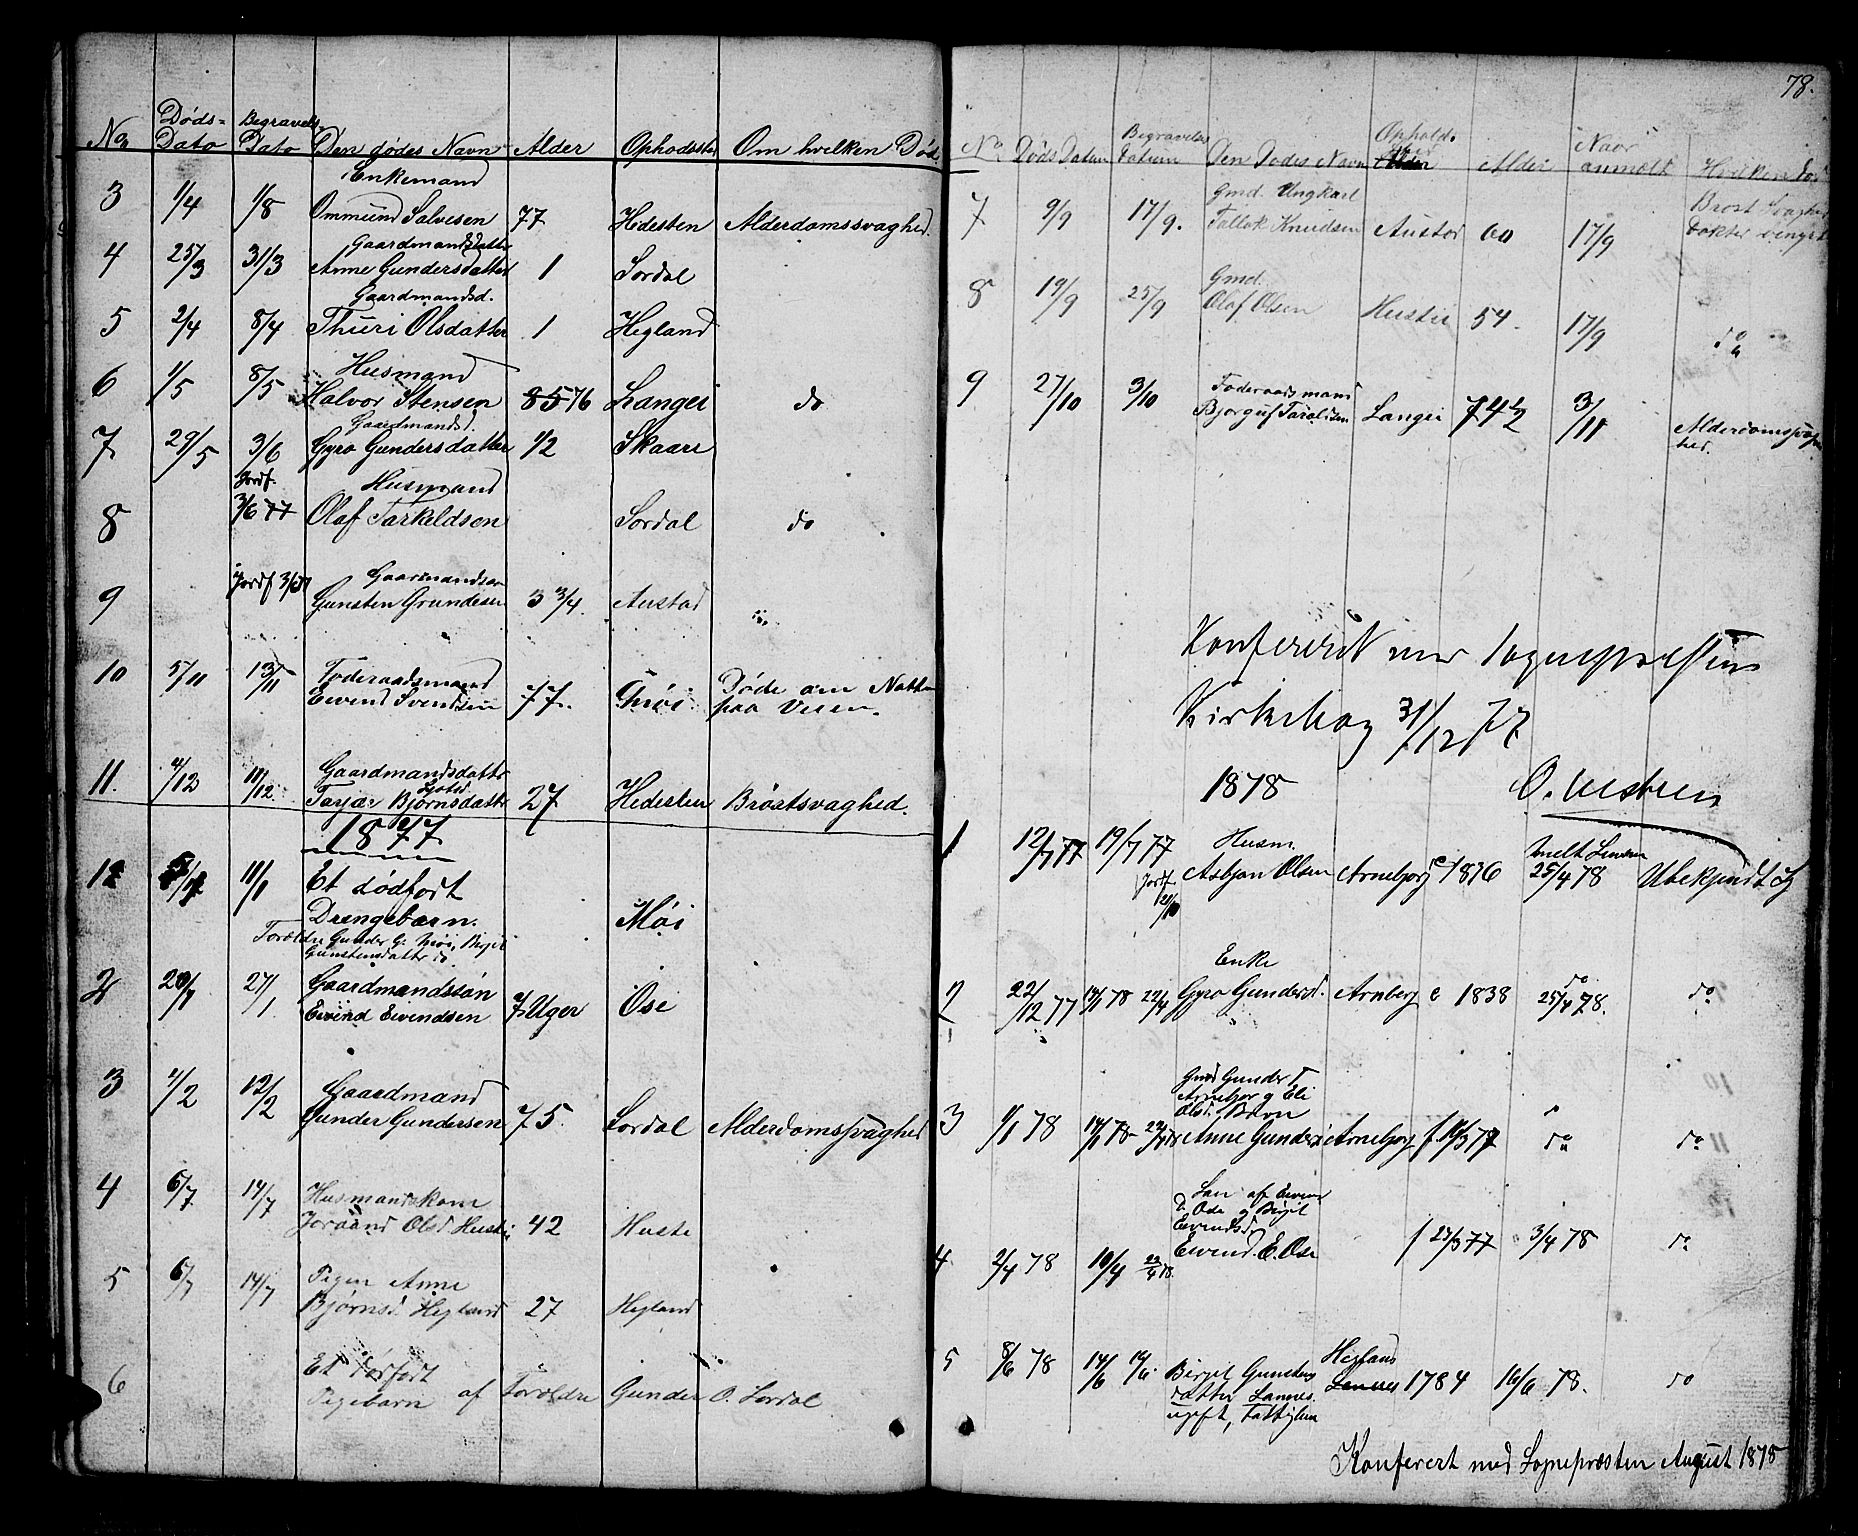 78.
No Døds= Dato Begravels. Dato Den dødes Navn Alder Ophodssted Om hvilken Død
3 1/4 1/8 Enkemand
Ommund Salvesen 77 Hedesten Alderdomssvaghed.
4 25/3 31/3 Gaardmandsdatter
Anne Gundersdatter 1 Sordal
5 2/4 8/4 Gaardmandsd.
Thuri Olsdatter 1 Hegland
6 1/5 8/5 Husmand
Halvor Stensen 85 76 Langei do
7 29/5 3/6 Gaardmandsd.
Gyro Gundersdatter 1/2 Skaare
8 Jordf. 3/6 77 Husmand
Olaf Tarkeldsen Sordal do
9 Jordf 3/6 Gaarmandsøn
Gunsten Grundesen 3 3/4. Austad
10 5/11 13/11 Føderaadsmand
Eivend Svendsen 77. Møi Døde om Natten
paa Veien.
11. 4/12 11/12 Gaardmandsdatter
Tarjær Bjørnsdatter 27 Hedesten Brøstsvaghed.
1877
1 11/1 Et dødfødt
Drengebarn. Møi
Forældre Gunder G. Møi, Birgit
Gunstensdatter do
2 20/1 27/1 Gaardmandssøn
Eivind Eivendsen 7 Uger Ose
3 4/2 12/2 Gaardmand
Gunder Gundersen 75. Sordal Alderdomssvaghed
4 6/7 14/7 Husmandskone
Joraand Olsd Huste 42 Huste
5 6/7 14/7 Pigen Anne
Bjørnsd. Hegland 27 Hegland
6 Et dødfødt
Pigebarn af Forældre Gunder O. Sordal
No Døds Datum Begravelses Datum Den Dødes Navn Opholdssted Alder Alder Naar anmeldt Hvilken Død
7 9/9 17/9. Gmd. Ungkarl
Tallak Knudsen Austad 60 17/9 Brøst Svaghed
Dokter
8 19/9 25/9 Gmd.
Olaf Olsen Huste 54. 17/9 do
9 27/10 3/10 Føderaadsmand
Bjorguf Taraldsen Langei 74 1/2 3/11 Alderdomssvag
hed.
Konfereret med Sognepræsten
Kirkebog 31/12 77
1878 O. Uestren
1 12/7 77 19/7 77 Husm.
Asbjøn Olsen Arnebjorg 1876 25/4 78 Ubekjendt Sg
Jordf 21/10
2 22/12 77 14/1 78 22/4 Enke
Gyro Gundersd. Arnberg e 1838 25/4 78. do
3 1/1 78 14/1 78 Gmd Gunder T
Arnebjor og Eli
Olsd. Barn
Anne Gunders Arnebjorg f. do do
4 2/4 78 10/4 Søn af Eivind
E. Ose og Birgit
Eivendsd.
Eivend. E. Ose f 23/3 77 3/4 78 do
5 8/6 78 14/6 14/6. Birgit Gunders
datter Lannes
ugift, Fattiglem Hegland Lannes 1784 16/6 78. do
Konferert med Sognepræsten August 1878